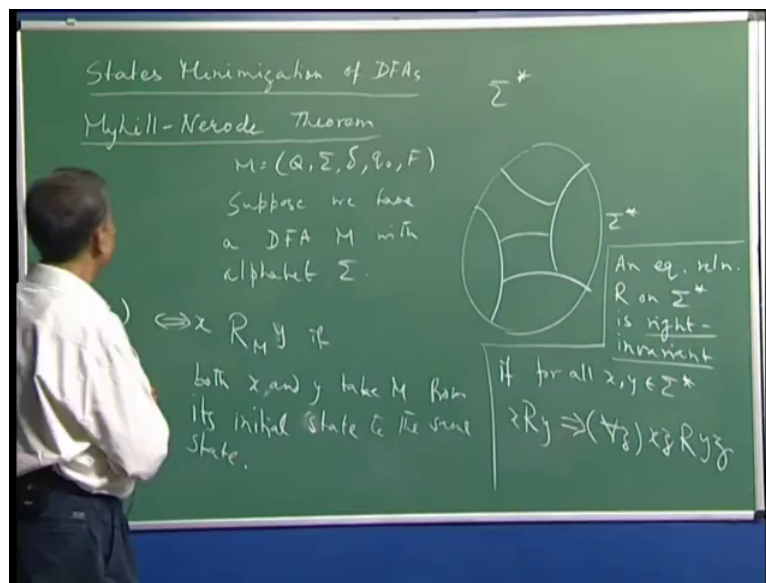 States Minimization of DFAs
Myhill-Nerode Theorem
M = (Q, Σ, δ, q₀, F)
Suppose we have
a DFA M with
alphabet Σ.
) ⇔ x R_M y if
both x, and y take M from
its initial state to the same
state.
Σ*
Σ*
An eq. reln.
R on Σ*
is right-
invariant
if for all x, y ∈ Σ*
xRy ⇒ (∀z) xz R yz